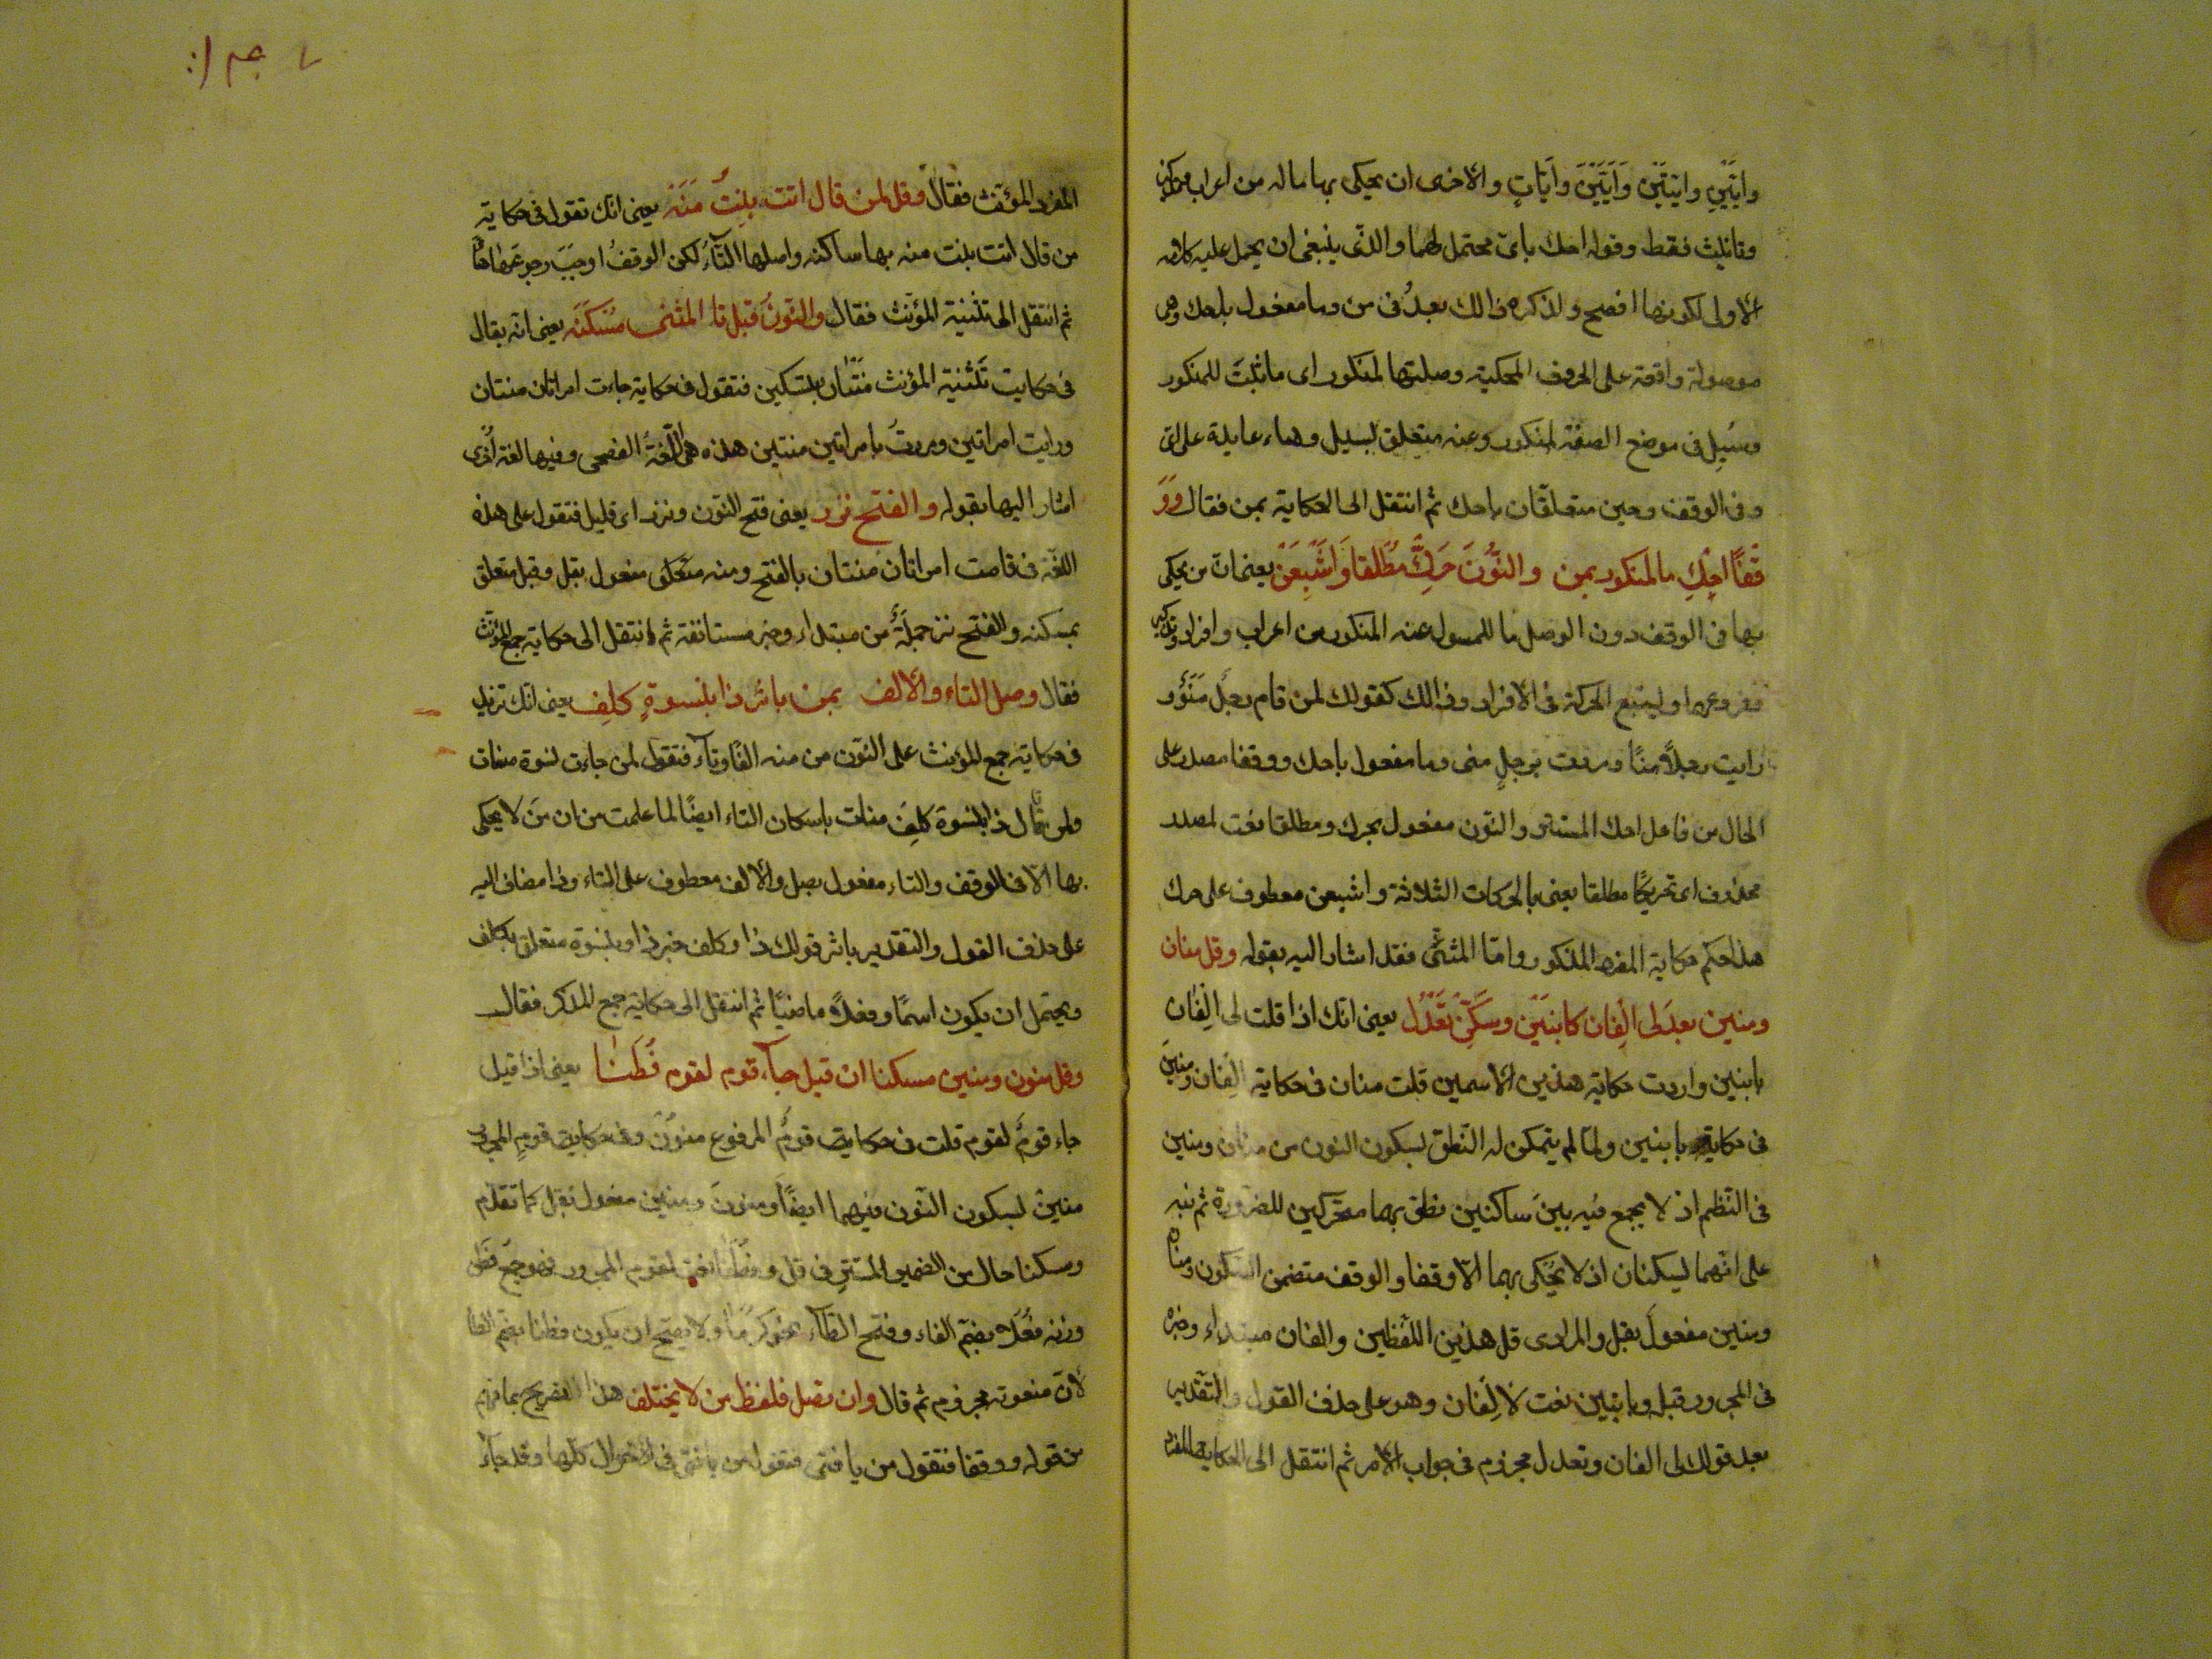 وايّين وايّتين وايّين وايّات والاخرى ان يحكى بها ماله من اعراب وتذكير
وتانيث فقط وقوله احك باىّ محتمل لهما والذى ينبغى ان يحمل عليه كلامه
الاولى لكونها افصح ولذكره ذالك بعدُ فى من وما مفعول باحك وهى
موصولة واقعة على الحروف المحكية وصلتها لمنكور اى ما ثبت للمنكور
وسُيِل فى موضع الصفة لمنكور وعنه متعلق بسيل وهاء عايدة على اىّ
وفى الوقف وحين متعلّقان باحك ثم انتقل الى الحكاية بمن فقال وَوَ
قْفاً احْكِ ما لمنكور بمن والنُّونَ حَرِّكْ مُطْلَقا وَاَشْبِعَنْ يعنى ان من يحكى
بها فى الوقف دون الوصل ما للمسول عنه المنكور من اعراب وافراد وتذكير
وفروعهما وليتبع الحركة فى الافراد وذالك كقولك لمن قام رجل مَنُو و
رايت رجلًا منًا ومررت برجلٍ منى وما مفعول باحك ووقفا مصدر على
الحال من فاعل احك المستتر والنون مفعول بحرك ومطلقا نعت لمصدر
محذوف اى تحريكًا مطلقا يعنى بالحركات الثلاثة واشبعن معطوف على حرك
هذا حكم حكاية المفرد المذكور وامّا المثنّى فقد اشار اليه بقوله وقل منان
ومنين بعدَ لى اِلْفان كابنَيْن وسَكِّنْ تَعْدِل يعنى انك اذا قلت لى اِلْفان
بابنين واردت حكاية هذين الاسمين قلت منان فى حكاية اِلْفان ومنين
فى حكاية بابنين ولمّا لم يتمكن له النّطق بسكون النون من منان ومنين
فى النّظم اذ لا يجمع فيه بين ساكنين نطق بهما متحركين للضرورة ثم نبه
على انّهما يسكنان اذ لا يُحكى بهما الّا وقفا والوقف متضمن السّكون ومنان
ومنين مفعول بقل والمراد قل هذين اللّفظين والفان مبتداء وخبره
فى المجرور قبله وبابنين نعت لاِلْفان وهو على حذف القول والتّقدير
بعد قولك لى الفان وتعدل مجزوم فى جواب الامر ثم انتقل الى الحكاية
المفرد المؤنّث فقال وقل لمن قال اتت بِنْتٌ مَنَهْ يعنى انّك تقول فى حكاية
من قال اتت بنت منه بهاء ساكنه واصلها التّاء لكن الوقف اوجب رجوعها هاءً
ثم انتقل الى تثنية المؤنّث فقال والنّونُ قبل تا المثنى مُسْكَنَه يعنى انّه يقال
فى حكايت تثنية المؤنث منتان بالتسكين فتقول فى حكاية جاءت امراتان منتان
ورايت امراتين ومررت بامراتين منتين هذه هى اللّغة الفصحى وفيها لغة اُخرى
اشار اليها بقوله والفتح نزر يعنى فتح النّون ونزر اى قليل فتقول على هذه
اللغة فى قامت امراتان منتان بالفتح ومنه متعلق مفعول بقل وقبل متعلق
بمسكنه والفتح نزر جملةٌ من مبتداء وخبر مستانفة ثم انتقل الى حكاية جمع المؤنّث
فقال وصل التاء والالف بمن باثر ذا بنسوةٍ كلِف يعنى انك تزيد
فى حكاية جمع المؤنث على النّون من منه الفًا وتاءً فتقول لمن جاءت نسوة منات
ولمن قال ذا بنسوة كلِف منات باسكان التاء ايضًا لما علمت من ان مَن لا يحكى
بها الّا فى الوقف والتاء مفعول بصل والالف معطوف على التاء وذا مضاف اليه
على حذف القول والتقدير باثر قولك ذا وكلف خبر ذا وبنسوة متعلق بكلف
ويحتمل ان يكون اسمًا وفعلاً ماضيًا ثم انتقل الى حكاية جمع المذكر فقال
وقل منون ومنين مسكنا ان قيل جاء قوم لقوم فُطَنَا يعنى اذا قيل
جاء قومٌ لقوم قلت فى حكاية قومٌ المرفوع منونْ وفى حكاية قومٍ المجرور
منينْ بسكون النّون فيهما ايضًا ومنون ومنين مفعول بقل كما تقدّم
ومسكنا حال من الضمير المستتر فى قل وفطنا نعت لقوم المجرور وهو جمع فطن
وزنه فُعَلاء بضم الفاء وفتح الطاء نحو كرما ولا يصح ان يكون فطنا بضم الطا
لانّ منعوته مجزوم ثم قال وان تصل فلفظ من لا يختلف هذا التصريح بما فهم
من قوله ووقفا فتقول من يا فتى فتقول من يا فتى فى الاحوال كلّها وقد جاء